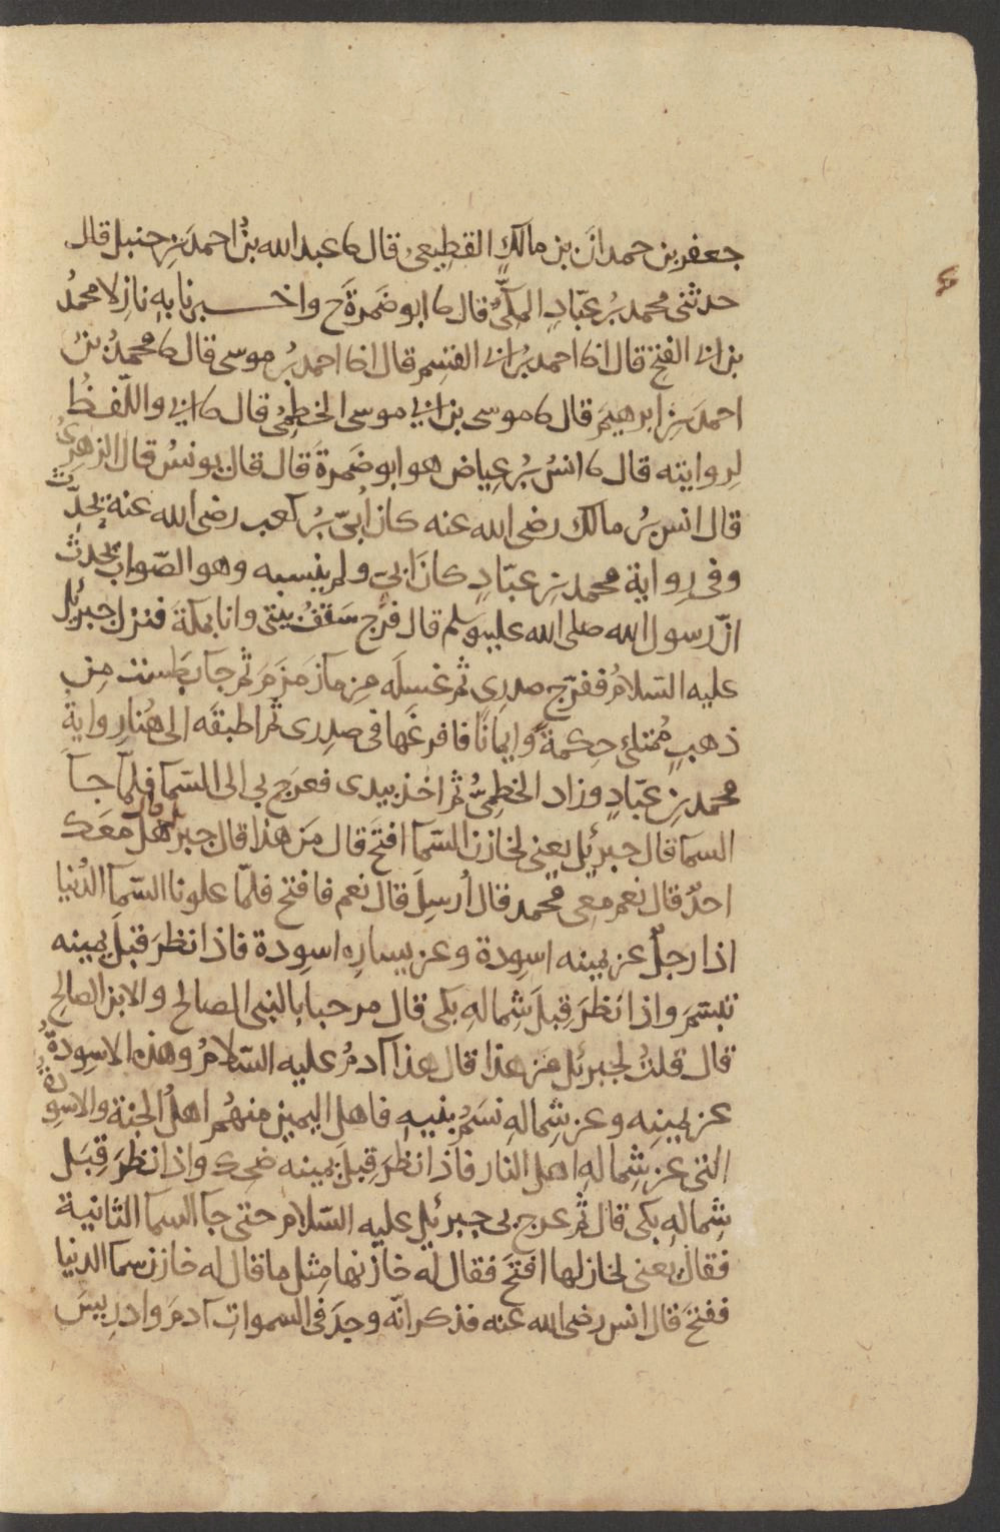 جعفر بن حمدان بن مالك القطيعي قال نا عبد الله بن احمد بن حنبل قال
حدثني محمد بن عباد المكي قال نا ابو ضمرة ح واخبرنا به نازلا محمد
بن ابي الفتح قال انا احمد بن ابي القسم قال انا احمد بن موسى قال نا محمد بن
احمد بن ابرهيم قال نا موسى بن ابي موسى الخطمي قال نا ابي واللفظ
لروايته قال نا انس بن عياض هو ابو ضمرة قال قال يونس قال الزهري
قال انس بن مالك رضى الله عنه كان ابي بن كعب رضى الله عنه يحدث
وفي رواية محمد بن عباد كان ابي ولم ينسبه وهو الصواب يحدث
ان رسول الله صلى الله عليه وسلم قال فرج سقف بيتي وانا بمكة فنزل جبرئل
عليه السلام ففرج صدري ثم غسله من مآ زمزم ثم جآ بطست من
ذهب ممتلئ حكمة وايمانا فافرغها في صدري ثم اطبقه الى هنا رواية
محمد بن عباد وزاد الخطمي ثم اخذ بيدي فعرج بي الى السما فلما جآ
السما قال جبرئيل يعني لخازن السمآ افتح قال من هذا قال جبرئيل قال هل معك
احد قال نعم معي محمد قال أرسل قال نعم فافتح فلما علونا السمآ الدنيا
اذا رجل عن يمينه اسودة وعن يساره اسودة فاذا نظر قبل يمينه
تبسم واذا نظر قبل شماله بكى قال مرحبا بالنبي الصالح والابن الصالح
قال قلت لجبرئل من هذا قال هذا آدم عليه السلام وهذه الاسودة
عن يمينه وعن شماله نسم بنيه فاهل اليمين منهم اهل الجنة والاسودة
التي عن شماله اهل النار فاذا نظر قبل يمينه ضحك واذا نظر قبل
شماله بكى قال ثم عرج بي جبرئيل عليه السلام حتى جآ السما الثانية
فقال يعني لخازنها افتح فقال له خازنها مثل ما قال له خازن سما الدنيا
ففتح قال انس رضى الله عنه فذكر انه وجد في السموات آدم وادريس